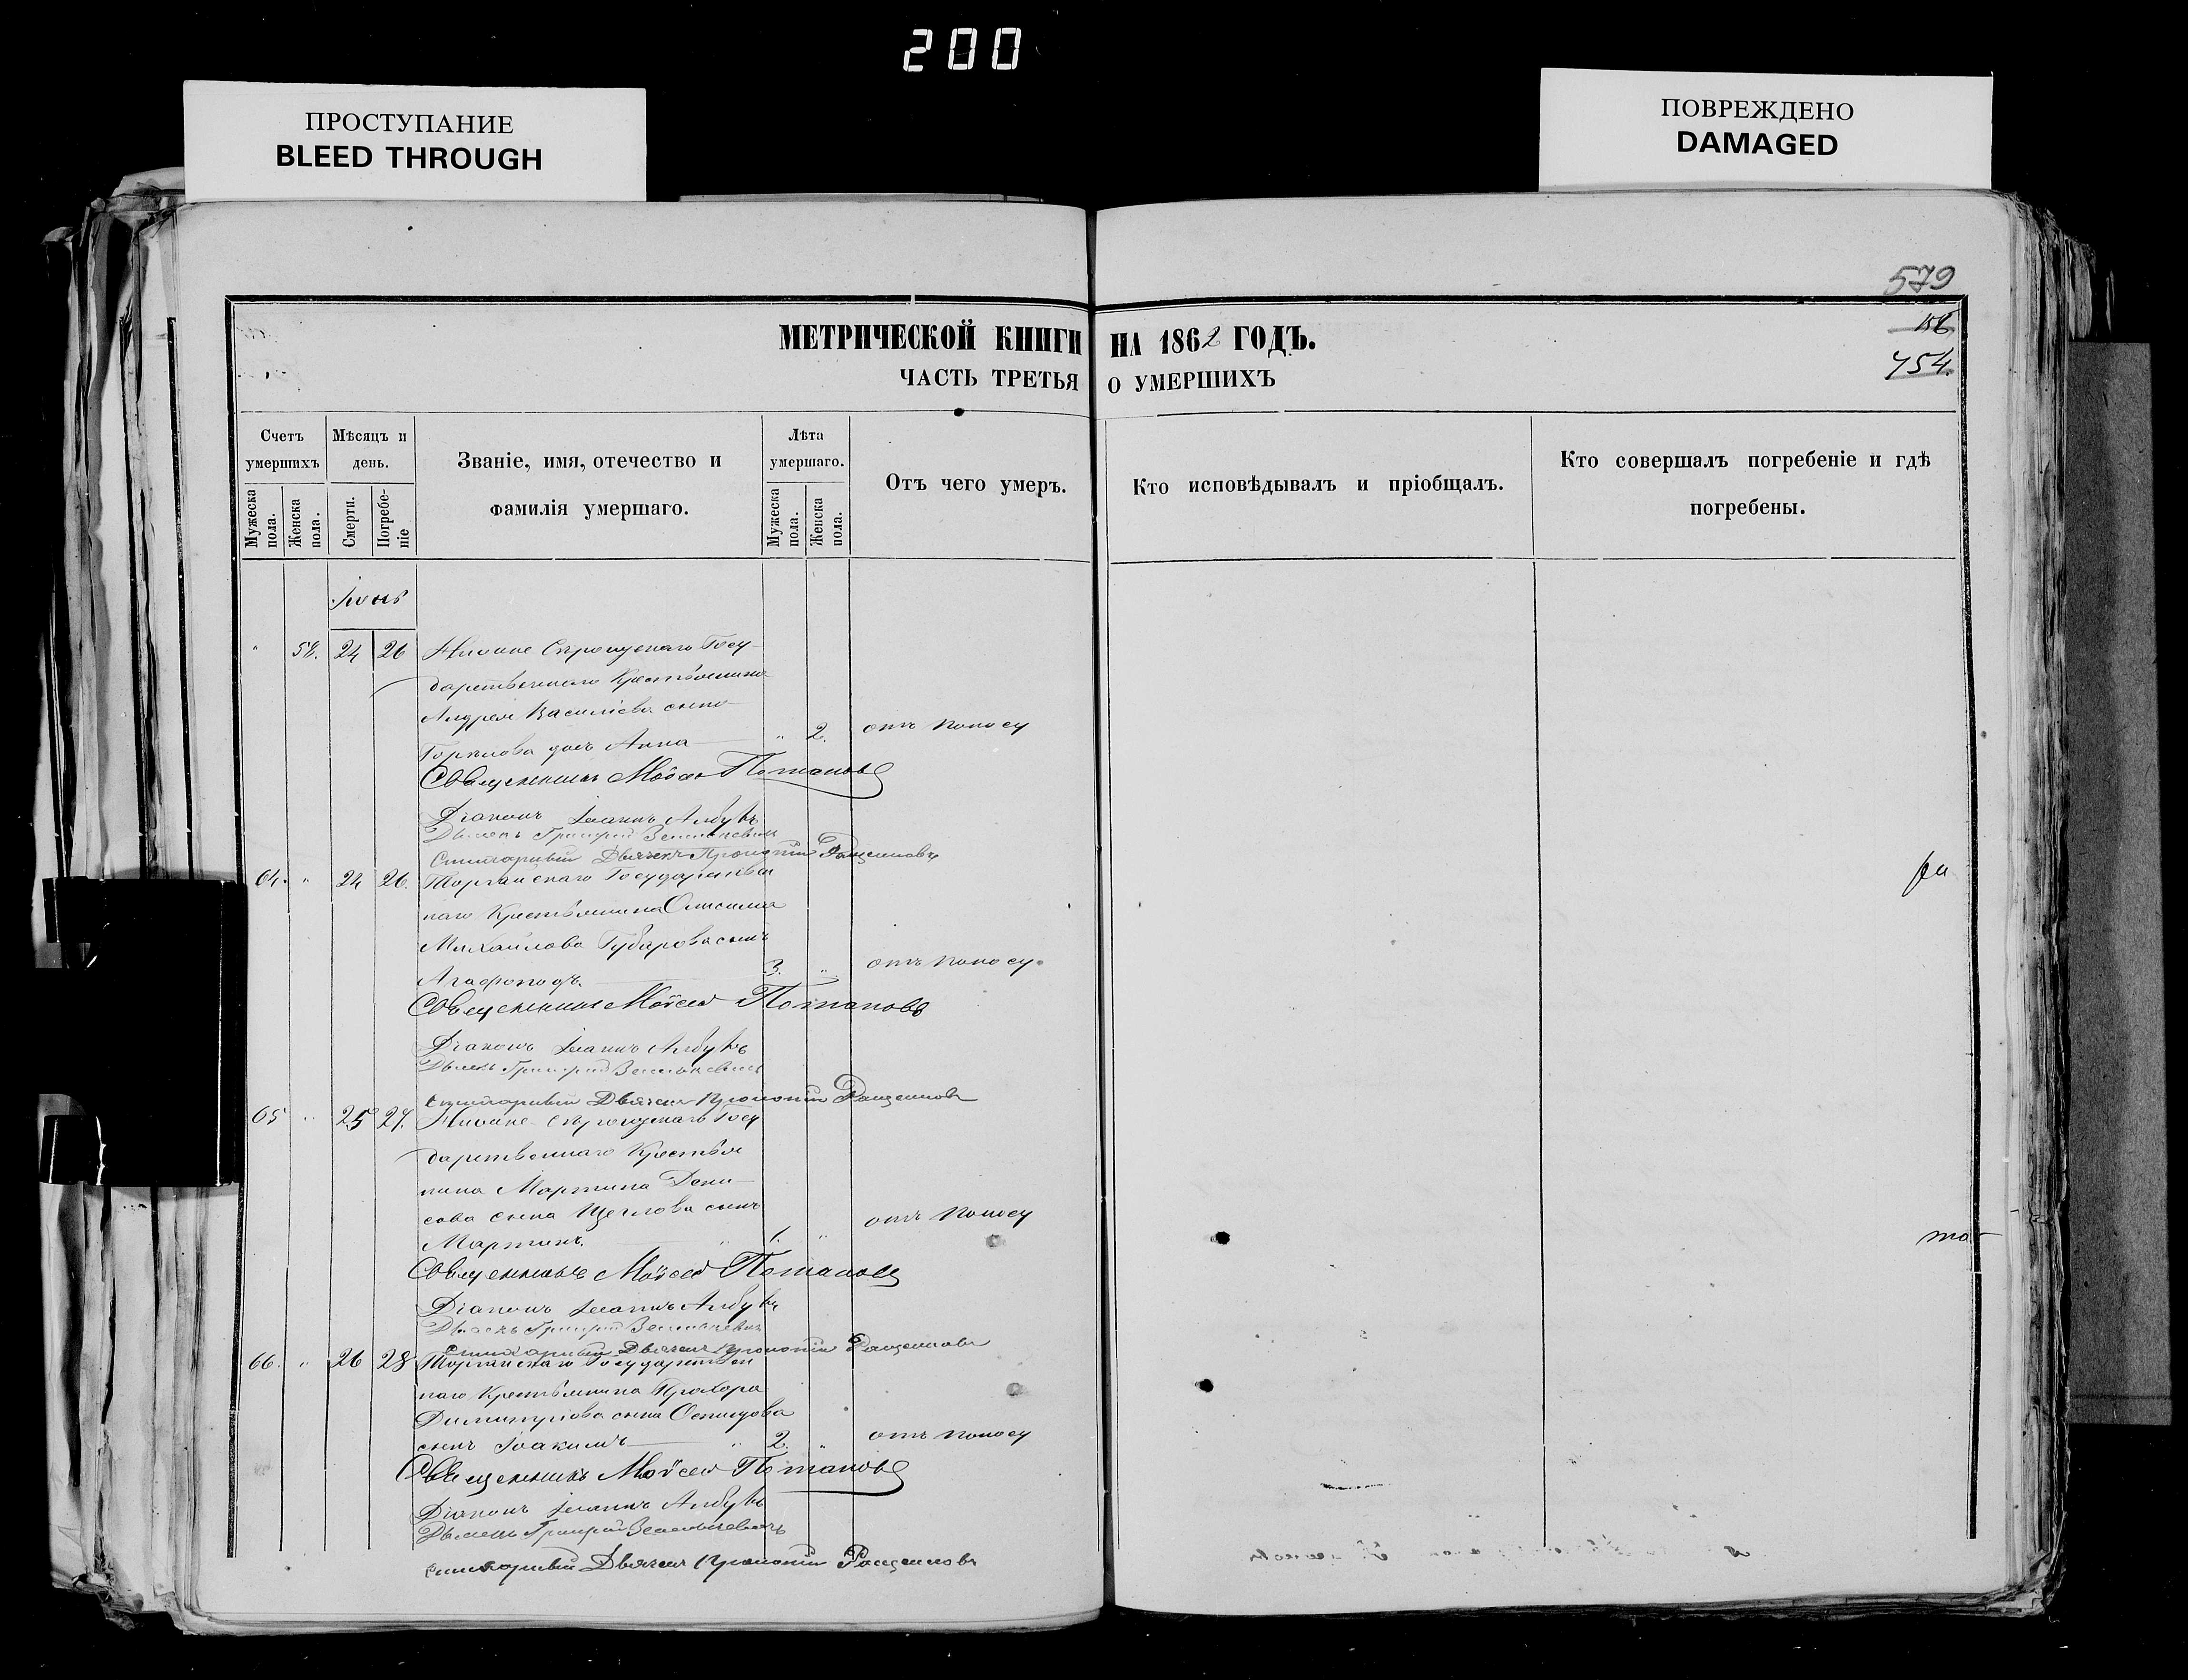 200
ПРОСТУПАНИЕ
BLEED THROUGH
ПОВРЕЖДЕНО
DAMAGED
579
156
754.
МЕТРИЧЕСКОЙ КНИГИ НА 1862 ГОДЪ.
ЧАСТЬ ТРЕТЬЯ О УМЕРШИХЪ
Счетъ умершихъ
Мужеска пола.
Женска пола.
Мѣсяцъ и день.
Смерти.
Погребеніе
Званіе, имя, отечество и
фамилія умершаго.
Лѣта умершаго.
Мужеска пола.
Женска пола.
Отъ чего умеръ.
Кто исповѣдывалъ и пріобщалъ.
Кто совершалъ погребеніе и гдѣ
погребены.
Іюнь
" 58. 24 26 Госу-
дарственнаго Крестьянина
Андрея Василіева сына
Горѣлова дочь Анна " 2. отъ поносу
Священникъ Моѵсей Потаповъ
Діаконъ Іоаннъ
Дьячекъ Григорій
Стихарный Дьячекъ Прокопій Ращепиловъ
64. " 24 26. Торгайскаго Государствен
наго Крестьянина Онисима
Михайлова Губарова сынъ
Агафоподъ. 3. " отъ поносу.
Священникъ Моѵсей Потаповъ
Діаконъ Іоаннъ
Дьячекъ Григорій
Стихарный Дьячекъ Прокопій Ращепиловъ
65 " 25 27. Госу
дарственнаго Крестья
нина Мартина Дени-
сова сына Щеглова сынъ
Мартинъ. " 1. " отъ поносу
Священникъ Моѵсей Потаповъ
Діаконъ Іоаннъ
Дьячекъ Григорій
Стихарный Дьячекъ Прокопій Ращепиловъ
66. " 26 28 Торгайскаго Государствен
наго Крестьянина Прохора
Димитріова сына Осипцова
сынъ Іоакимъ " 2. " отъ поносу
Священникъ Моѵсей Потаповъ
Діаконъ Іоаннъ
Дьячекъ Григорій
Стихарный Дьячекъ Прокопій Ращепиловъ